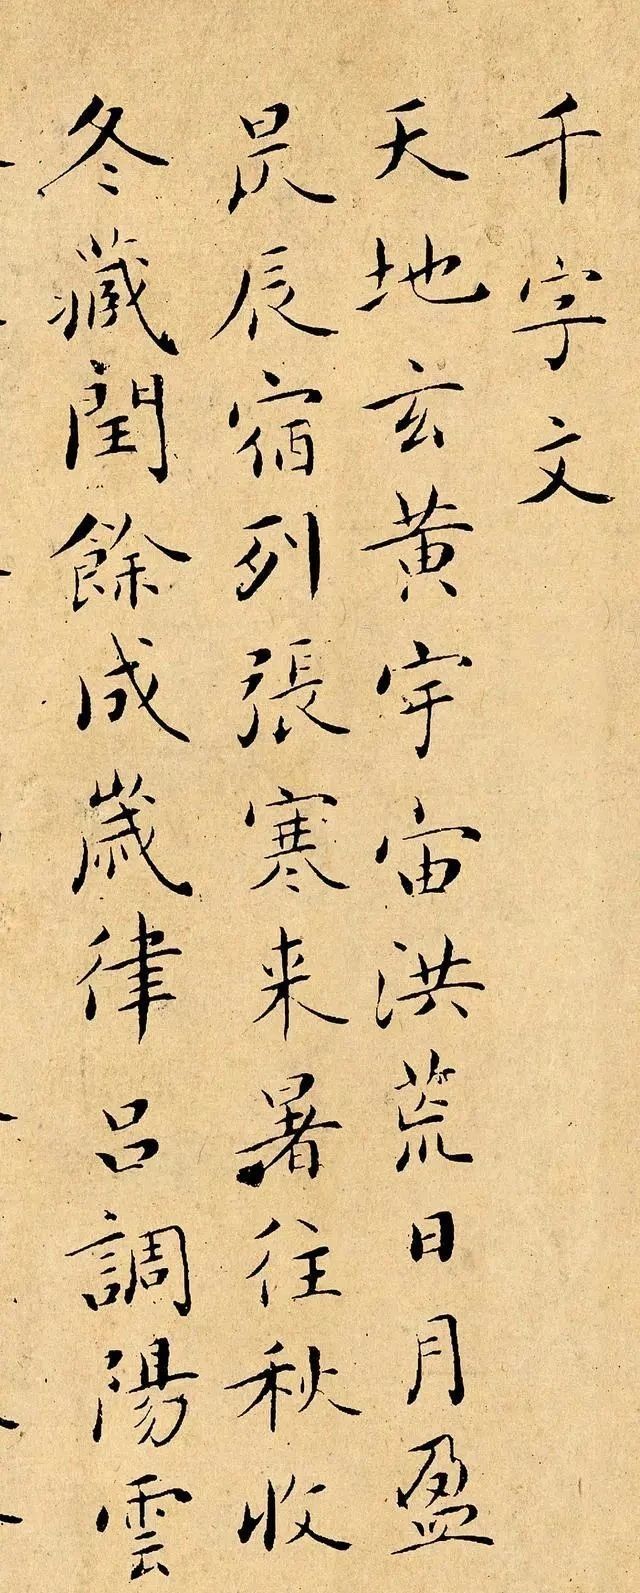 千字文
天地玄黄宇宙洪荒日月盈
昃辰宿列張寒来暑往秋收
冬藏閏餘成歲律吕調陽雲